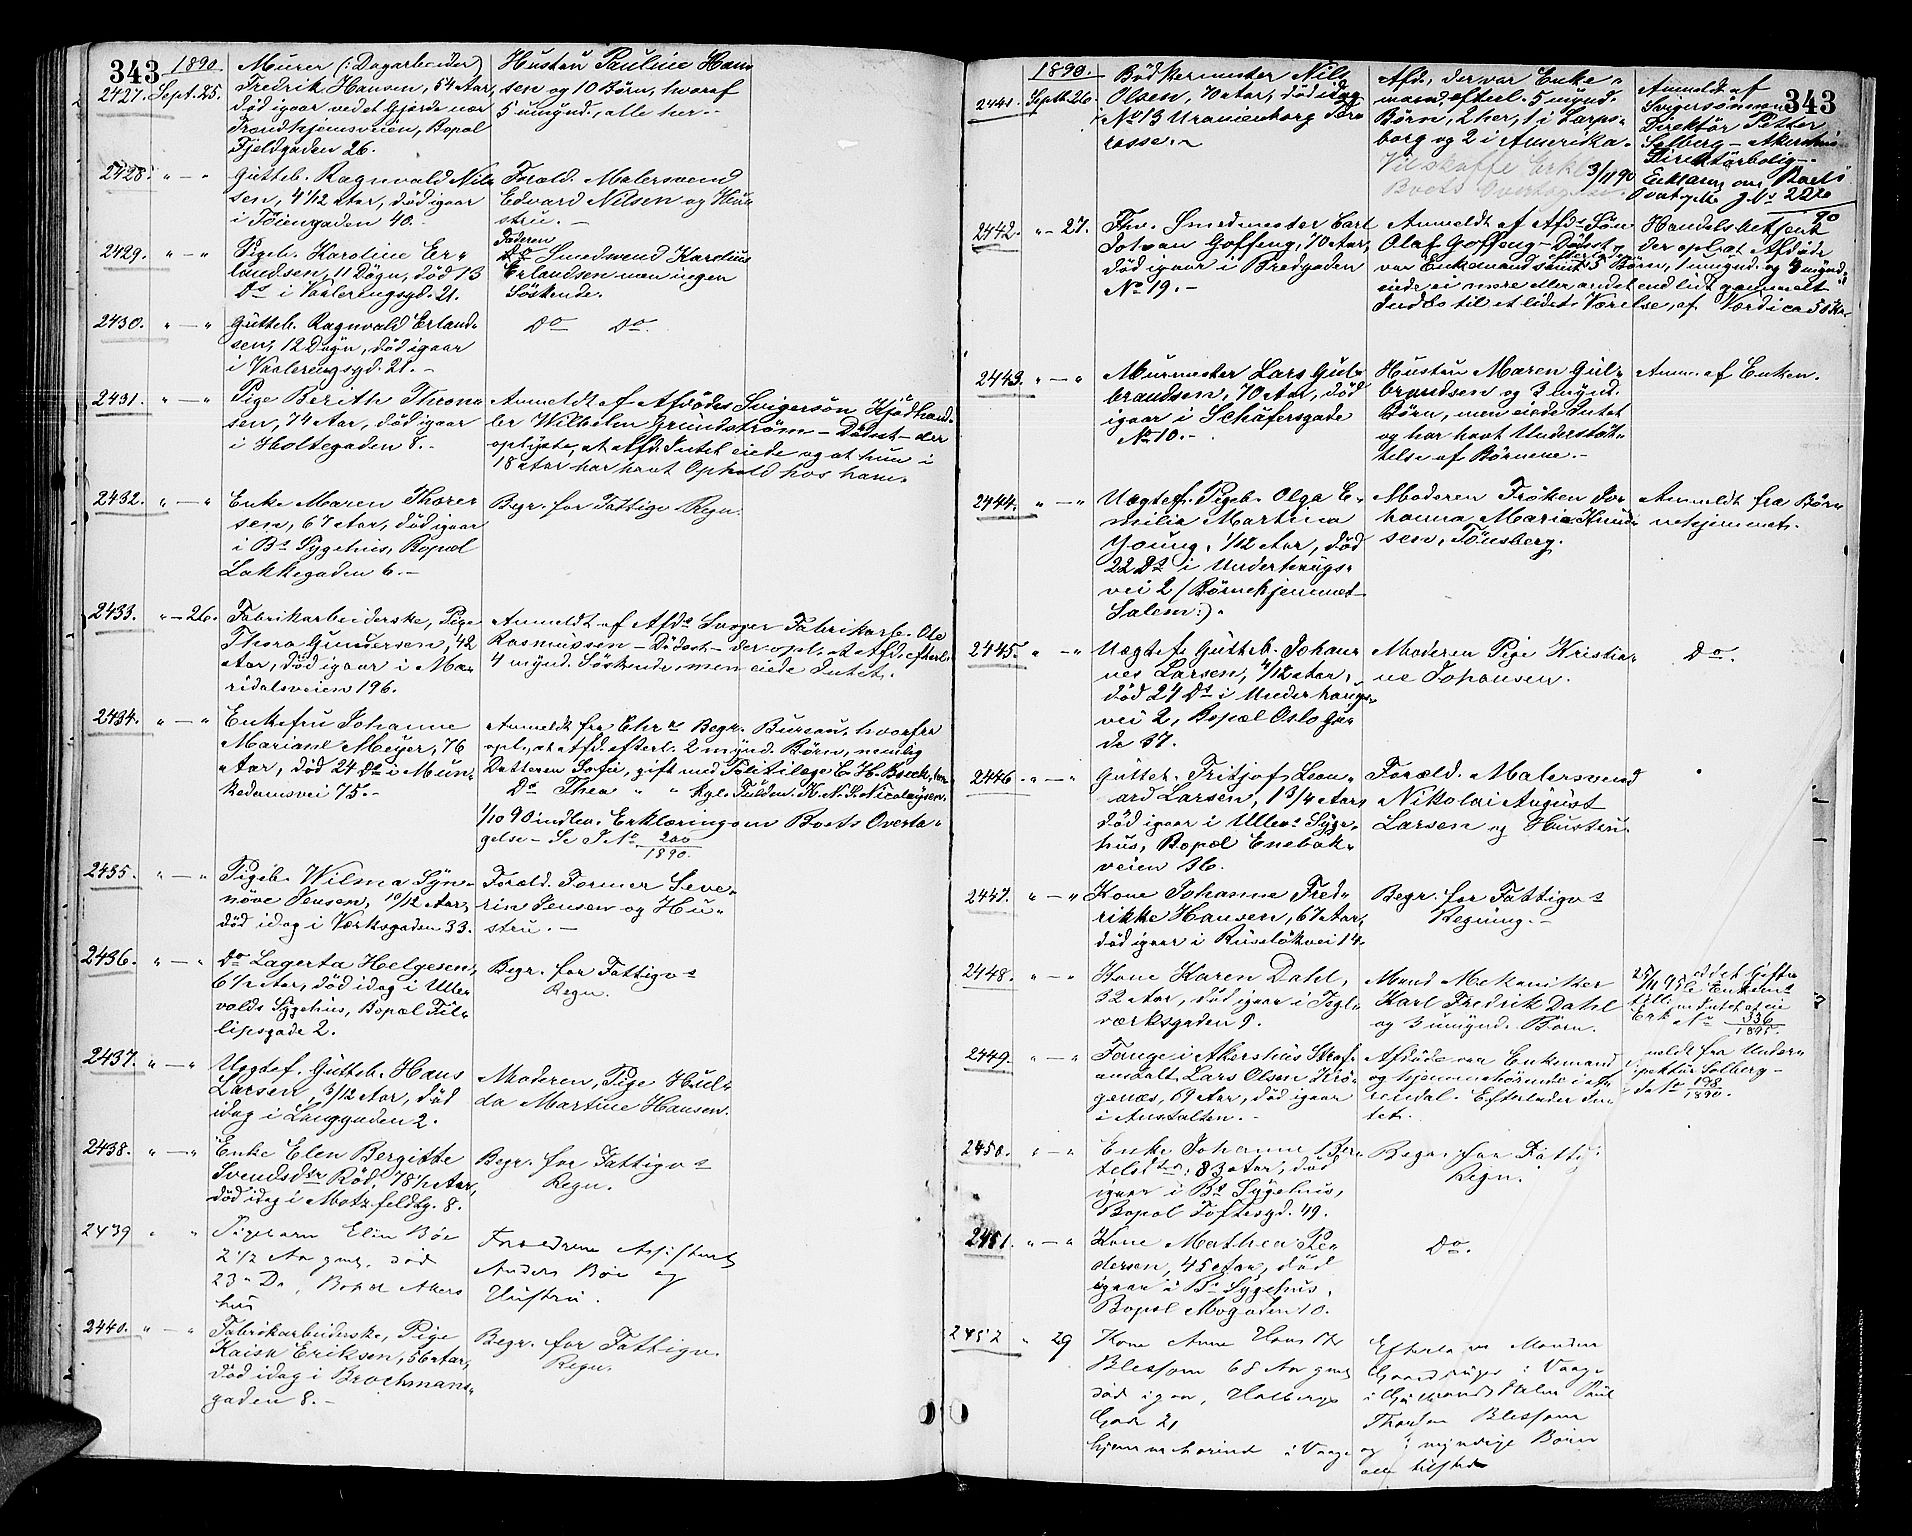 343
1890
2427. Sept. 25.
Murer (: Dagarbeider)
Fredrik Hansen, 54 Aar,
död igaar vedet Gjerde nær
Trondhjemsveien, Bopæl
Fjeldgaden 26.
Hustru Pauline Han
sen og 10 Börn, hvoraf
5 umynd., alle her. -
2428. " — "
Gutteb. Ragnvald Nil
sen, 4 1/12 Aar, död igaar
i Töiengaden 40. -
Foræld. Malersvend
Edvard Nilsen og Hu
stru. -
2429. " — "
Pigeb. Karoline Er-
landsen, 11 Dögn, död 13
Ds i Vaalerengsgd. 21.
Faderen
Do Smedsvend Karolius
Erlandsen men ingen
Söskende.
2430. " — "
Gutteb. Ragnvald Erland-
sen, 12 Dögn, död igaar
i Vaalerengsgd. 21. -
Do Do.
2431. " — "
Pige Berith Thron
sen, 74 Aar, död igaar
i Holtegaden 8. -
Anmeldt af Afdödes Svigersön Kjödhand-
ler Wilhelm Grundström - Dödsat - der
oplyste, at Afd. Intet eiede og at hun i
18 Aar har havt Ophold hos ham. -
2432. " — "
Enke Maren Thorer
sen, 67 Aar, död igaar
i Bs Sygehus, Bopæl
Lakkegaden 6. -
Begr. for Fattigv. Regn.
2433. " — 26.
Fabrikarbeiderske, Pige
Thora Gundersen, 42
Aar, död igaar i Ma-
ridalsveien 196.
Anmeldt af Afds Svoger Fabrikarb. Ole
Rasmussen - Dödsat - der opl. at Afd. efterl.
4 mynd. Söskende, men eiede Intet.
2434. " — "
Enkefru Johanne
Mariane Meyer, 76
Aar, död 24 Ds i Mun-
kedamsvei 75. -
Anmeldt fra Chr.s Begr. Bureau, hvorfra
opl., at Afd. efterl. 2 mynd. Börn, nemlig
Datteren Sofie, gift med Politilæge E. H. Boeck,
Do Thea " " Kgl. Fuldm. H. N. S. Nicolaysen.
1/10 90 indlev. Erklæring om Boets Overta-
gelse - Se J No 200/1890.
2435. " — "
Pigeb. Wilma Syn-
növe Jensen, 10/12 Aar,
död idag i Værksgaden 33.
Foræld. Former Seve-
rin Jensen og Hu-
stru. -
2436. " — "
Do Lagerta Helgesen,
6 1/2 Aar, död idag i Ulle-
volds Sygehus, Bopæl Fil-
lipsgade 2.
Begr. for Fattigv.s
Regn.
2437. " — "
Uægtef. Gutteb. Hans
Larsen, 3/12 Aar, död
idag i Langgaden 2.
Moderen, Pige Hul-
da Martine Hansen.
2438. " — "
Enke Elen Bergitte
Svendsdtr Röd, 78 1/2 Aar,
död idag i Motzfeldtg. 8.
Begr. for Fattigv.s
Regn.
2439 " "
Pigebarn Elin Böe
2 1/2 Aar gml., död
23 Ds, Bopæl Akers
hus
Forældrene Assistent
Anders Böe og
Hustru.
2440. " — "
Fabrikarbeiderske, Pige
Kaisa Eriksen, 56 Aar,
död idag i Brochmans-
gaden 8. -
Begr. for Fattigv.
Regn.
343
1890.
2441. Septb. 26.
Bödkermester Nils
Olsen, 70 Aar, död idag
No 13 Uranienborg Ter
rasse. -
Afd., der var Enke-
mand, efterl. 5 mynd.
Börn, 2 her, 1 i Sarps-
borg og 2 i Amerika.
Vil skaffe Erkl.
Boets Overtagelse
Anmeldt af
Svigersönnen
Direktör Petter
Solberg - Akershus
Direktörbolig -
3/11 90 Erklæring om Boets
Overtagelse J. No 222/90
2442. " — 27.
Fhv. Smedmester Carl
Johan Goffeng, 70 Aar,
död igaar i Bredgaden
No 19. -
Anmeldt af Afds Sön Handelsbetjent
Olaf Goffeng - Dödsat - der oplyste Afdöde
var Enkemand samt efterlod 5 Börn, 1 umynd. og 4 mynd.,
eiede ei mere eller andet end lidt gammelt
Indbo til et lidet Værelse, af Værdi ca 50 Kr.
2443. " — "
Murmester Lars Gul-
brandsen, 70 Aar, död
igaar i Schäfersgade
No 10. -
Hustru Maren Gul-
brandsen og 3 mynd.
Börn, men eiede Intet
og har havt Understöt-
telse af Börnene. -
Anm. af Enken.
2444. " — "
Uægtef. Pigeb. Olga E-
milia Martina
Young, 1/12 Aar, död
22 Ds i Underhaugs-
vei 2 (Börnehjemmet
Salem:).
Moderen Fröken Jo-
hanna Maria Knud
sen, Tönsberg.
Anmeldt fra Bör-
nehjemmet.
2445. " — "
Uægtef. Gutteb. Johan-
nes Larsen, 4/12 Aar,
död 24 Ds i Underhaugs-
vei 2, Bopæl Oslo Ga-
de 37.
Moderen Pige Kristia-
ne Johansen.
Do.
2446. " — "
Gutteb. Fritjof Leon-
ard Larsen, 1 3/4 Aar,
död igaar i Ullev.s Syge-
hus, Bopæl Enebak-
veien 36.
Foræld. Malersvend
Nikolai August
Larsen og Hustru.
2447. " — "
Kone Johanne Fred-
rikke Hansen, 67 Aar,
död igaar i Ruselökvei 14.
Begr. for Fattigv.s
Regning. -
2448. " — "
Kone Karen Dahl,
32 Aar, död igaar i Tegl-
værksgaden 9.
Mand Mekaniker
Karl Fredrik Dahl
og 3 umynd. Börn.
336/1895
2449. " — "
Fange i Akershus Straf-
anstalt Lars Olsen Krö-
genæs, 69 Aar, död igaar
i Anstalten. -
Afdöde var Enkemand
og hjemmehörende i A
rendal. Efterlader In-
tet.
meldt fra Under-
pektör Solberg -
No 198/1890.
2450. " — "
Enke Johanne Ber-
telsdtr, 83 Aar, död
igaar i Bs Sygehus,
Bopæl Toftesgd. 49.
Begr. for Fattig
Regn.
2451. " — "
Kone Mathea Pe-
dersen, 45 Aar, död
igaar i Bs Sygehus,
Bopæl Mogaden 10.
Do.
2452 " 29
Kone Anne Hans Dtr
Blessom 68 Aar gml
död igaar, Holbergs
Gade 21
hjemmehörende i Vaage
Efterladt Manden
i Vaage
i Gulbrandsdalen Paul
Thorsten Blessom
og myndige Börn
alle tilstede